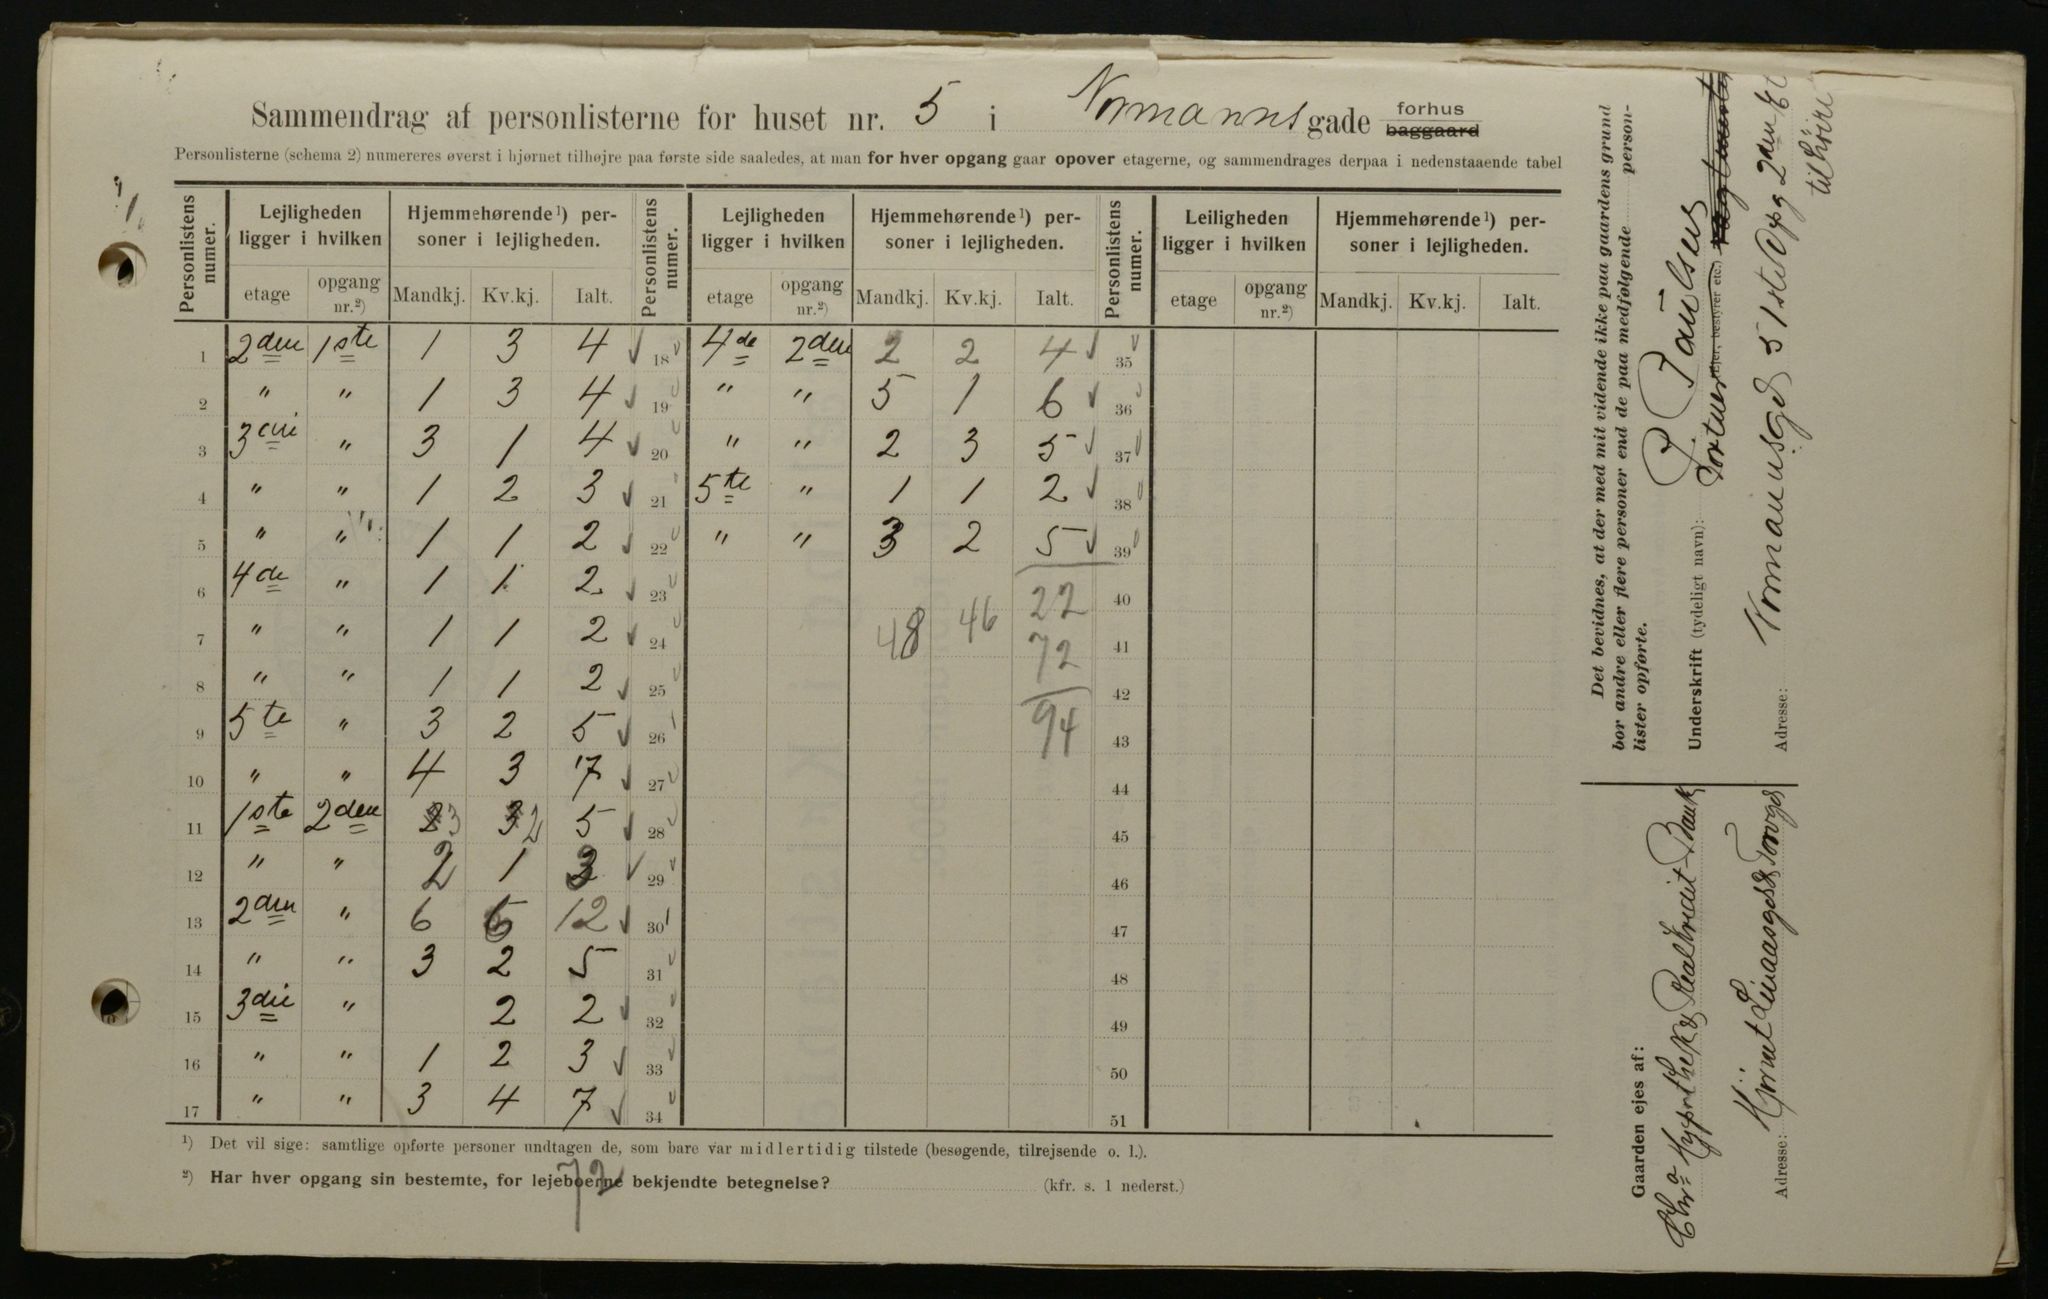 Sammendrag af personlisterne for huset nr. 5 i Normannsgade forhus baggaard
Personlisterne (schema 2) numereres øverst i hjørnet tilhøjre paa første side saaledes, at man for hver opgang gaar opover etagerne, og sammendrages derpaa i nedenstaaende tabel
Personlistens numer. Lejligheden ligger i hvilken Hjemmehørende ¹) personer i lejligheden. Personlistens numer. Lejligheden ligger i hvilken Hjemmehørende ¹) personer i lejligheden. Personlistens numer. Leiligheden ligger i hvilken Hjemmehørende ¹) personer i lejligheden.
etage opgang nr. ²) Mandkj. Kv.kj. Ialt. etage opgang nr. ²) Mandkj. Kv.kj. Ialt. etage opgang nr. ²) Mandkj. Kv.kj. Ialt.
1 2den 1ste 1 3 4 18 4de 2den 2 2 4 35
2 " " 1 3 4 19 " " 5 1 6 36
3 3die " 3 1 4 20 " " 2 3 5 37
4 " " 1 2 3 21 5te " 1 1 2 38
5 " " 1 1 2 22 " " 3 2 5 39
6 4de " 1 1 2 23 22 40
7 " " 1 1 2 24 48 46 72 41
8 " " 1 1 2 25 42
9 5te " 3 2 5 26 94 43
10 " " 4 3 7 27 44
11 1ste 2den 3 2 5 28 45
12 " " 2 1 3 29 46
13 2den " 6 6 12 30 47
14 " " 3 2 5 31 48
15 3die " 2 2 32 49
16 " " 1 2 3 33 50
17 " " 3 4 7 34 51
¹) Det vil sige: samtlige opførte personer undtagen de, som bare var midlertidig tilstede (besøgende, tilrejsende o. l.).
²) Har hver opgang sin bestemte, for lejeboerne bekjendte betegnelse? (kfr. s. 1 nederst.)
72
Det bevidnes, at der med mit vidende ikke paa gaardens grund
bor andre eller flere personer end de paa medfølgende personlister opførte.
Underskrift (tydeligt navn): P. Paulsen
Portner (ejer, bestyrer etc.)
Adresse: Normansgd 5 1ste Opg 2den Et
til höire
Gaarden ejes af:
Chra Hypothek & Realkredit Bank
Adresse: